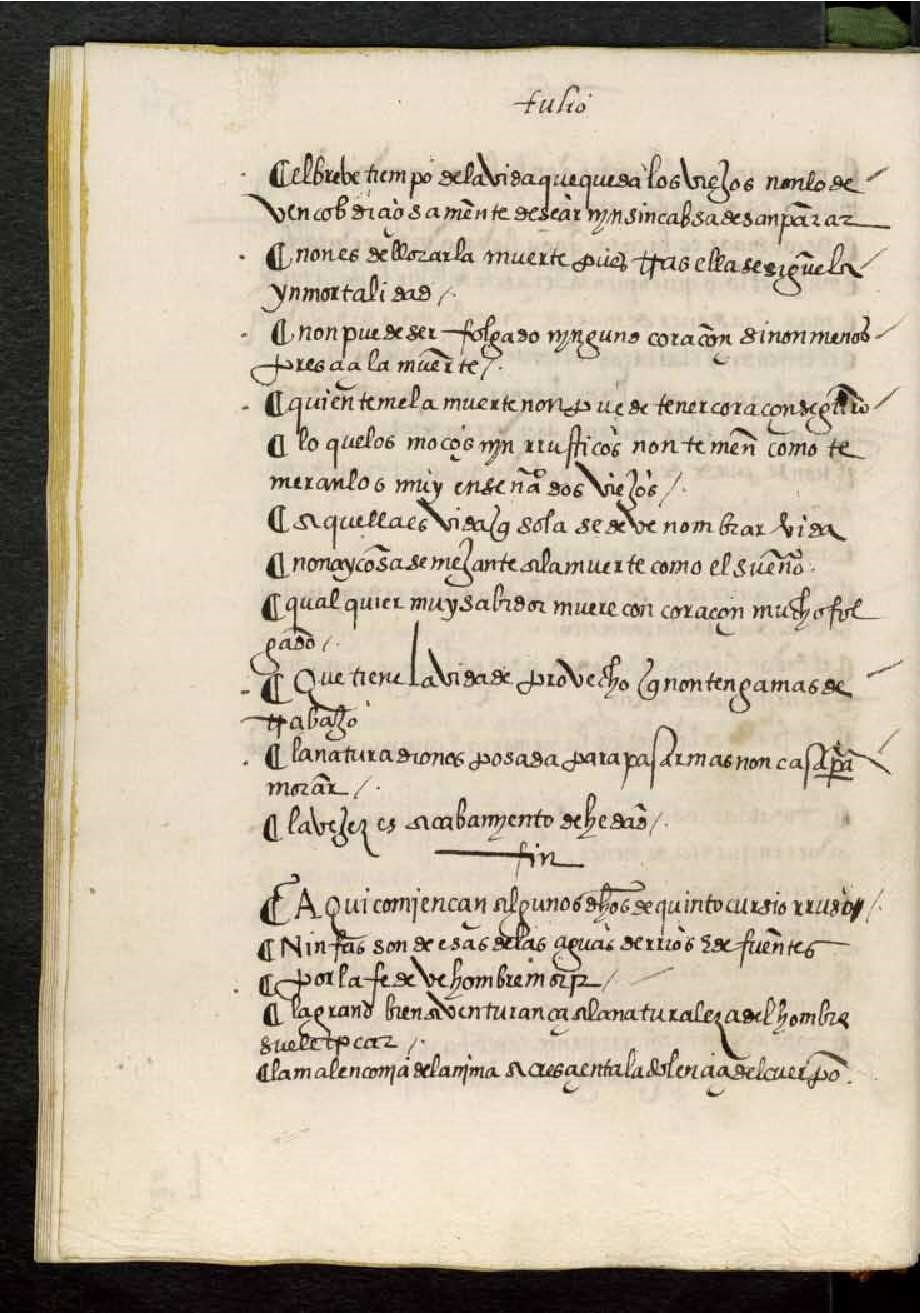 tulio
¶ el brebe tiempo dela vida que queda a los viejos non lo de
ven cobdiçiosamente desear nyn sin cabsa desanparar
¶ non es de llorar la muerte pues tras ella se sigue la
ynmortalidad /.
¶ non puede ser folgado nynguno coraçon si non menos
presçia la muerte /.
¶ quien teme la muerte non puede tener coraçon seguro
¶ lo que los moços nyn rrusticos non temen como te
meran los muy enseñados viejos /.
¶ aquella es vida q̃ sola se deve nombrar vida
¶ non ay cosa semejante a la muerte como el sueño.
¶ qual quier muy sabidor muere con coraçon mucho fol
gado /.
¶ Que tiene la vida de provecho q̃ non tenga mas de
trabajo
¶ la natura dionos posada para pasar mas non casa pa
morar /.
¶ la vejez es acabamyento de hedad /.
fin
¶ Aqui comiençan algunos dhos de quinto cursio rruso /.
¶ Ninfas son deesas delas aguas de rrios & de fuentes
¶ por la fe deve hombre morir /.
¶ la grand bien aventurança a la naturaleza del hombre
suele trocar /.
¶ la malenconja del anjma acresçenta la dolençia del cuerpo.